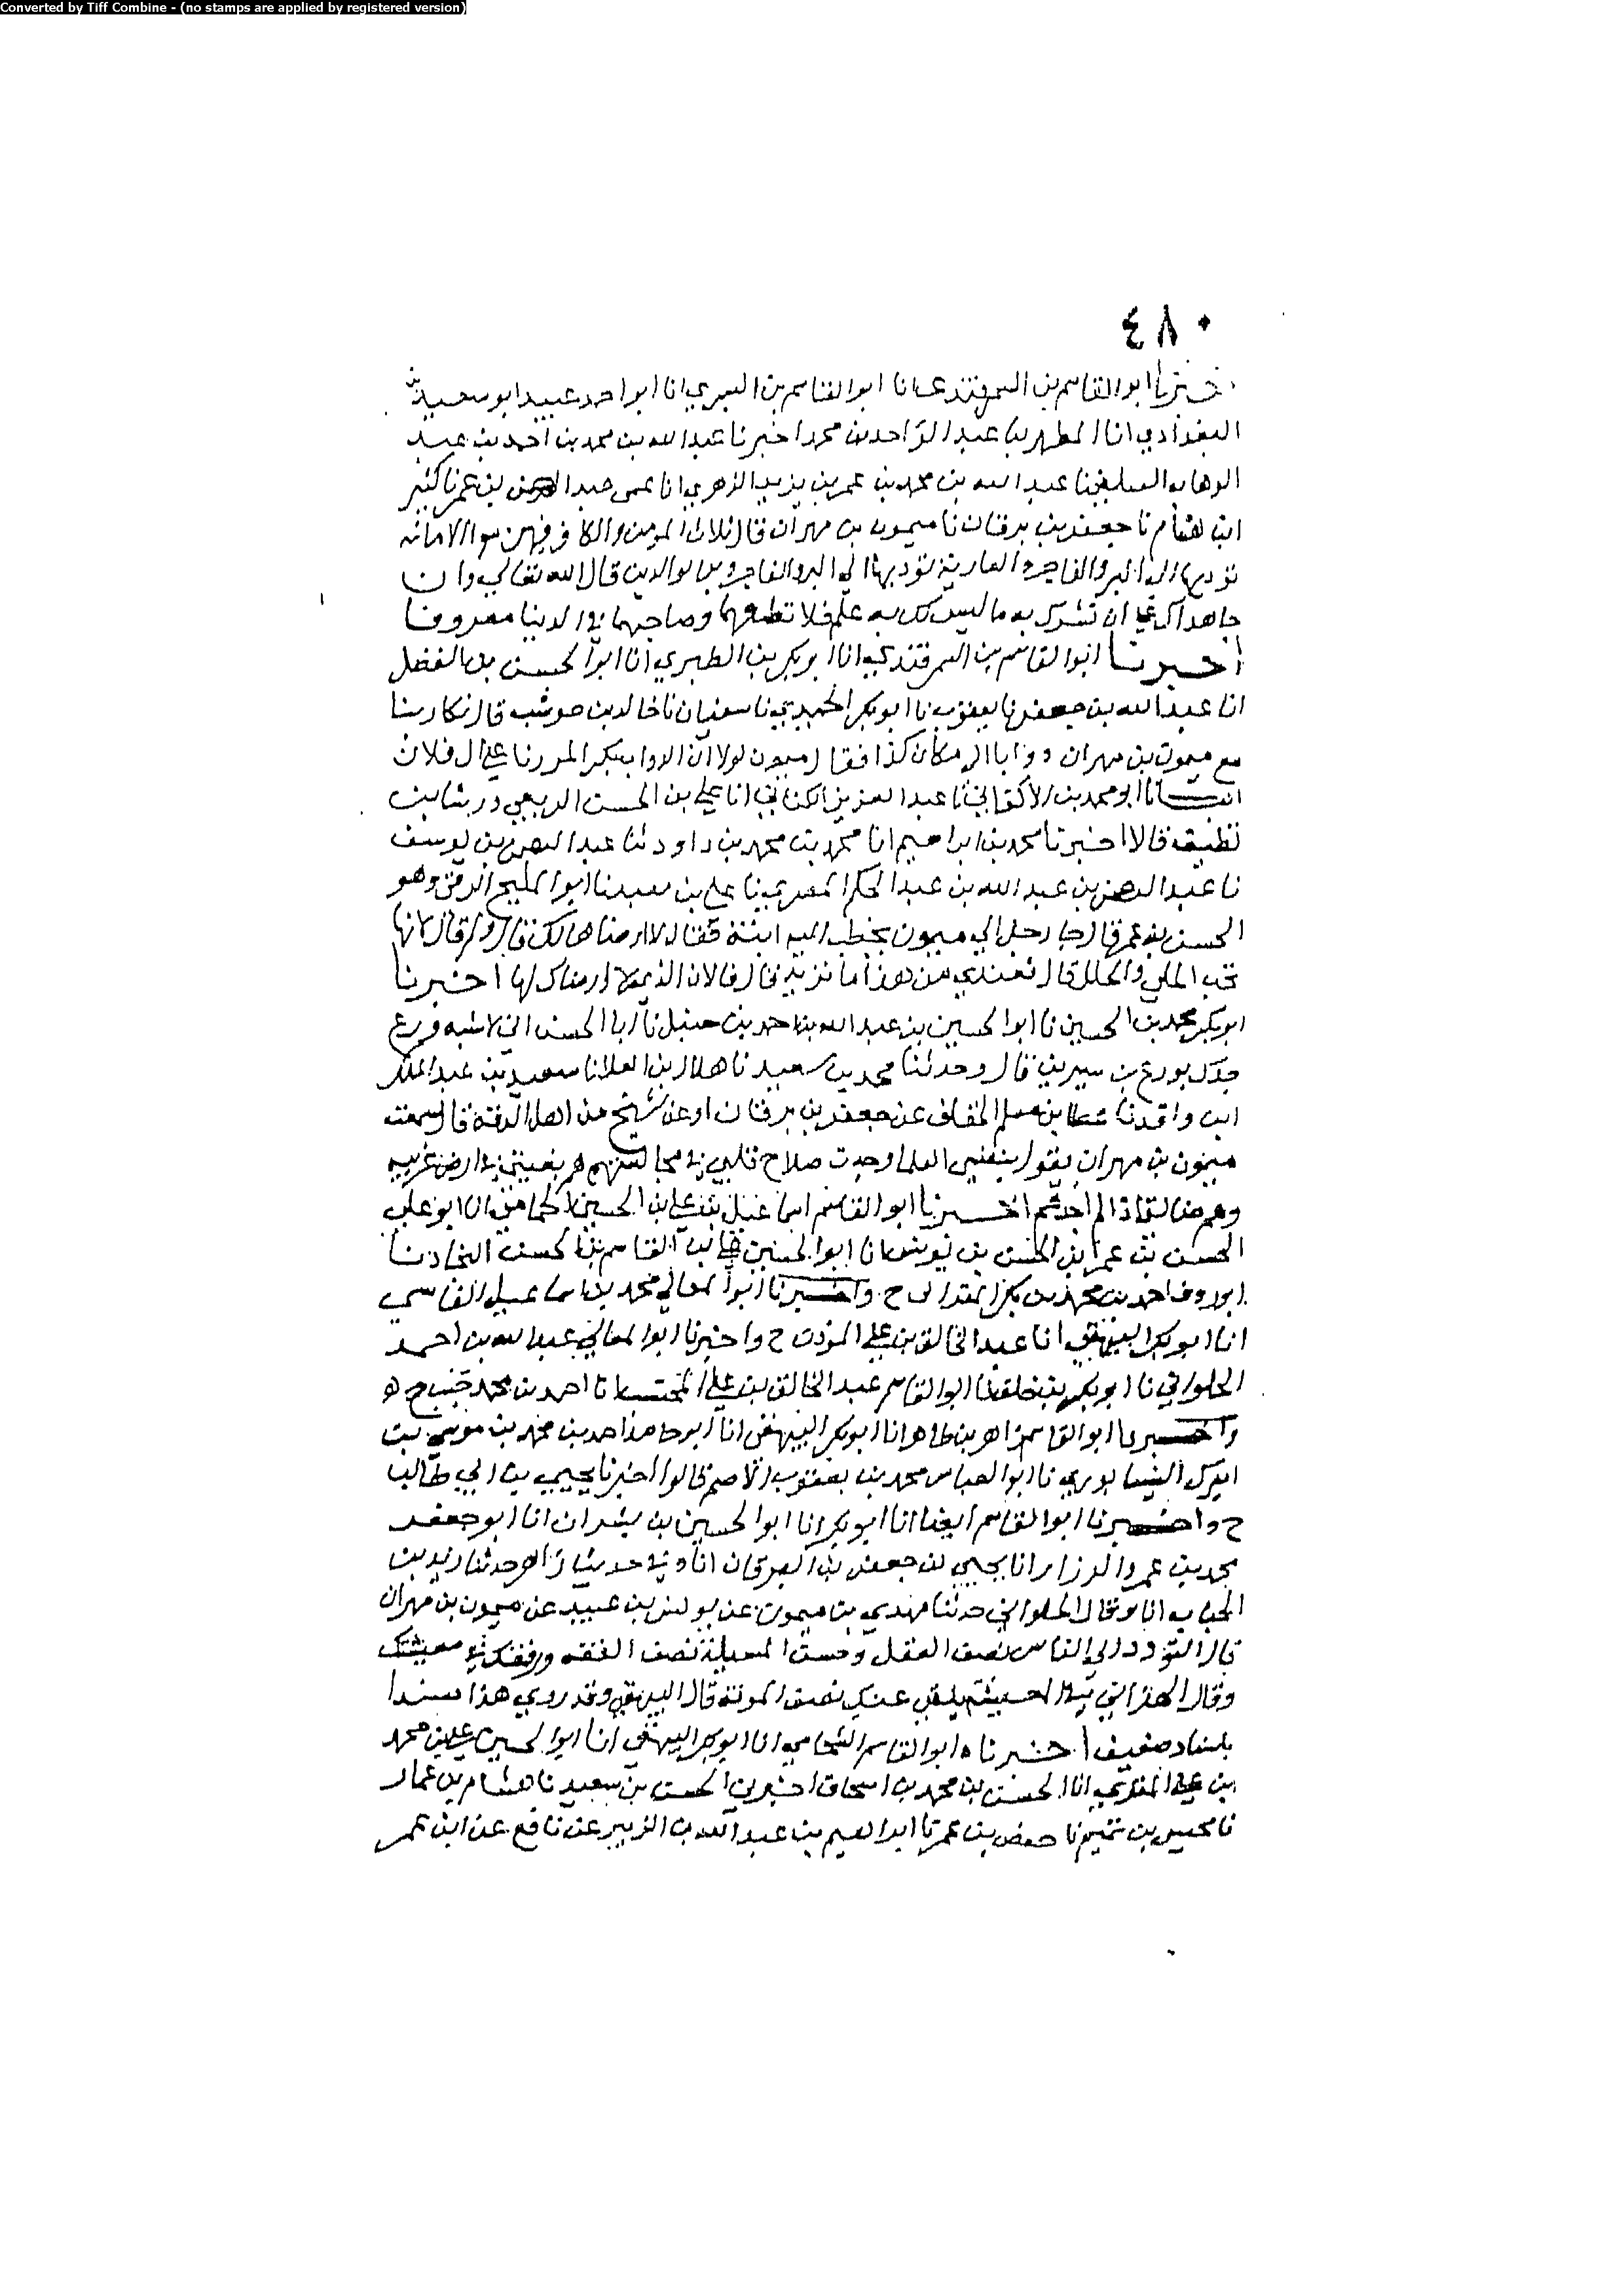 Converted by Tiff Combine - (no stamps are applied by registered version)
٤٨٠
ابو القاسم بن السمرقندي انا ابو القاسم بن البسري انا ابو احمد عبيد ابو سعيد بن
البغدادي انا المطهر بن عبد الواحد بن محمد اخبرنا عبد الله بن محمد بن احمد بن عبد
الوهاب السلمي نا عبد الله بن محمد بن عمر بن يزيد الزهري انا عمى عبد الرحمن بن عمر نا كثير
ابن هشام نا جعفر بن برقان نا ميمون بن مهران قال ثلاث المومن والكافر فيهن سوا الامانه
توديها الى البر والفاجر والعارية توديها الى البر والفاجر وبر الوالدين قال الله تعالى وان
جاهداك على ان تشرك به ما ليس لك به علم فلا تطعهما وصاحبهما في الدنيا معروفا
اخبرنا ابو القاسم بن السمرقندي انا ابو بكر بن الطبري انا ابو الحسين بن الفضل
انا عبد الله بن جعفر نا يعقوب نا ابو بكر الحميدي نا سفيان نا خالد بن حوشب قال تكارينا
مع ميمون بن مهران دوابا الى مكان كذا فقال ميمون لولا ان الدواب بكرا لمررنا على ال فلان
انبانا ابو محمد بن الاكفاني نا عبد العزيز الكتاني انا علي بن الحسن الربعي ورشا بن
نظيف قالا اخبرنا محمد بن ابراهيم انا محمد بن محمد بن داود ثنا عبد الرحمن بن يوسف
نا عبد الرحمن بن عبد الله بن عبد الحكم المصري نا علي بن معبد نا ابو المليح الرقي وهو
الحسن بن عمر قال جا رجل الى ميمون يخطب اليه ابنته فقال لا ارضاها لك قال ولم قال لانها
تحب الحلي والحلل قال فعندي من هذا ما تريد قال فالان الذي لا ارضاك لها اخبرنا
ابو بكر محمد بن الحسين نا ابو الحسين بن عبد الله بن احمد بن حنبل نا ابا الحسن اني لاشبه ورع
جدك بورع بن سيرين قال وحدثنا محمد بن سعيد نا هلال بن العلا نا سعيد بن عبد الملك
ابن واقد نا عطا بن مسلم الخفاف عن جعفر بن برقان او عن شيخ من اهل الرقة قال سمعت
ميمون بن مهران يقول بنفسي العلما وجدت صلاح قلبي في مجالستهم هم بغيتي في ارض غربه
وهم ضالتي اذا لم اجدهم اخبرنا ابو القاسم اسماعيل بن علي بن الحسين الحمامي انا ابو علي
الحسن بن عمر بن الحسن بن يونس انا ابو الحسين بن القاسم بن الحسن النجاد نا
ابو روق احمد بن محمد بن بكر الهزاني ح واخبرنا ابو المعالي محمد بن اسماعيل الفارسي
انا ابو بكر البيهقي انا عبد الخالق بن علي الموذن ح واخبرنا ابو المعالي عبد الله بن احمد
الحلواني نا ابو بكر بن خلف نا ابو القاسم عبد الخالق بن علي المحتسب انا احمد بن محمد خنب ح
واخبرنا ابو القاسم زاهر بن طاهر انا ابو بكر البيهقي انا ابو حامد احمد بن محمد بن موسى بن
النيسابوري نا ابو العباس محمد بن يعقوب الاصم قالوا اخبرنا يحيى بن ابي طالب
ح واخبرنا ابو القاسم ايضا انا ابو بكر انا ابو الحسين بن بشران انا ابو جعفر
محمد بن عمرو الرزاز انا يحيى بن جعفر بن الزبرقان انا وفي حديث زاهر حدثنا زيد بن
الحباب انا وقال الحلواني حدثنا مهدي بن ميمون عن يونس بن عبيد عن ميمون بن مهران
قال التودد الى الناس نصف العقل وحسن المسيلة نصف الفقه ورفقك في معيشتك
وقال الهزاني في المعيشة يلقي عنك نصف المونة قال البيهقي وقد روي هذا مسندا
باسناد ضعيف اخبرناه ابو القاسم الشحامي انا ابو بكر البيهقي انا ابو الحسين علي بن محمد
بن علي المقري انا الحسن بن محمد بن اسحاق اخبرنا الحسن بن سعيد نا هشام بن عمار
نا مخيس بن تميم نا حفص بن عمر نا ابراهيم بن عبد الله بن الزبير عن نافع عن ابن عمر